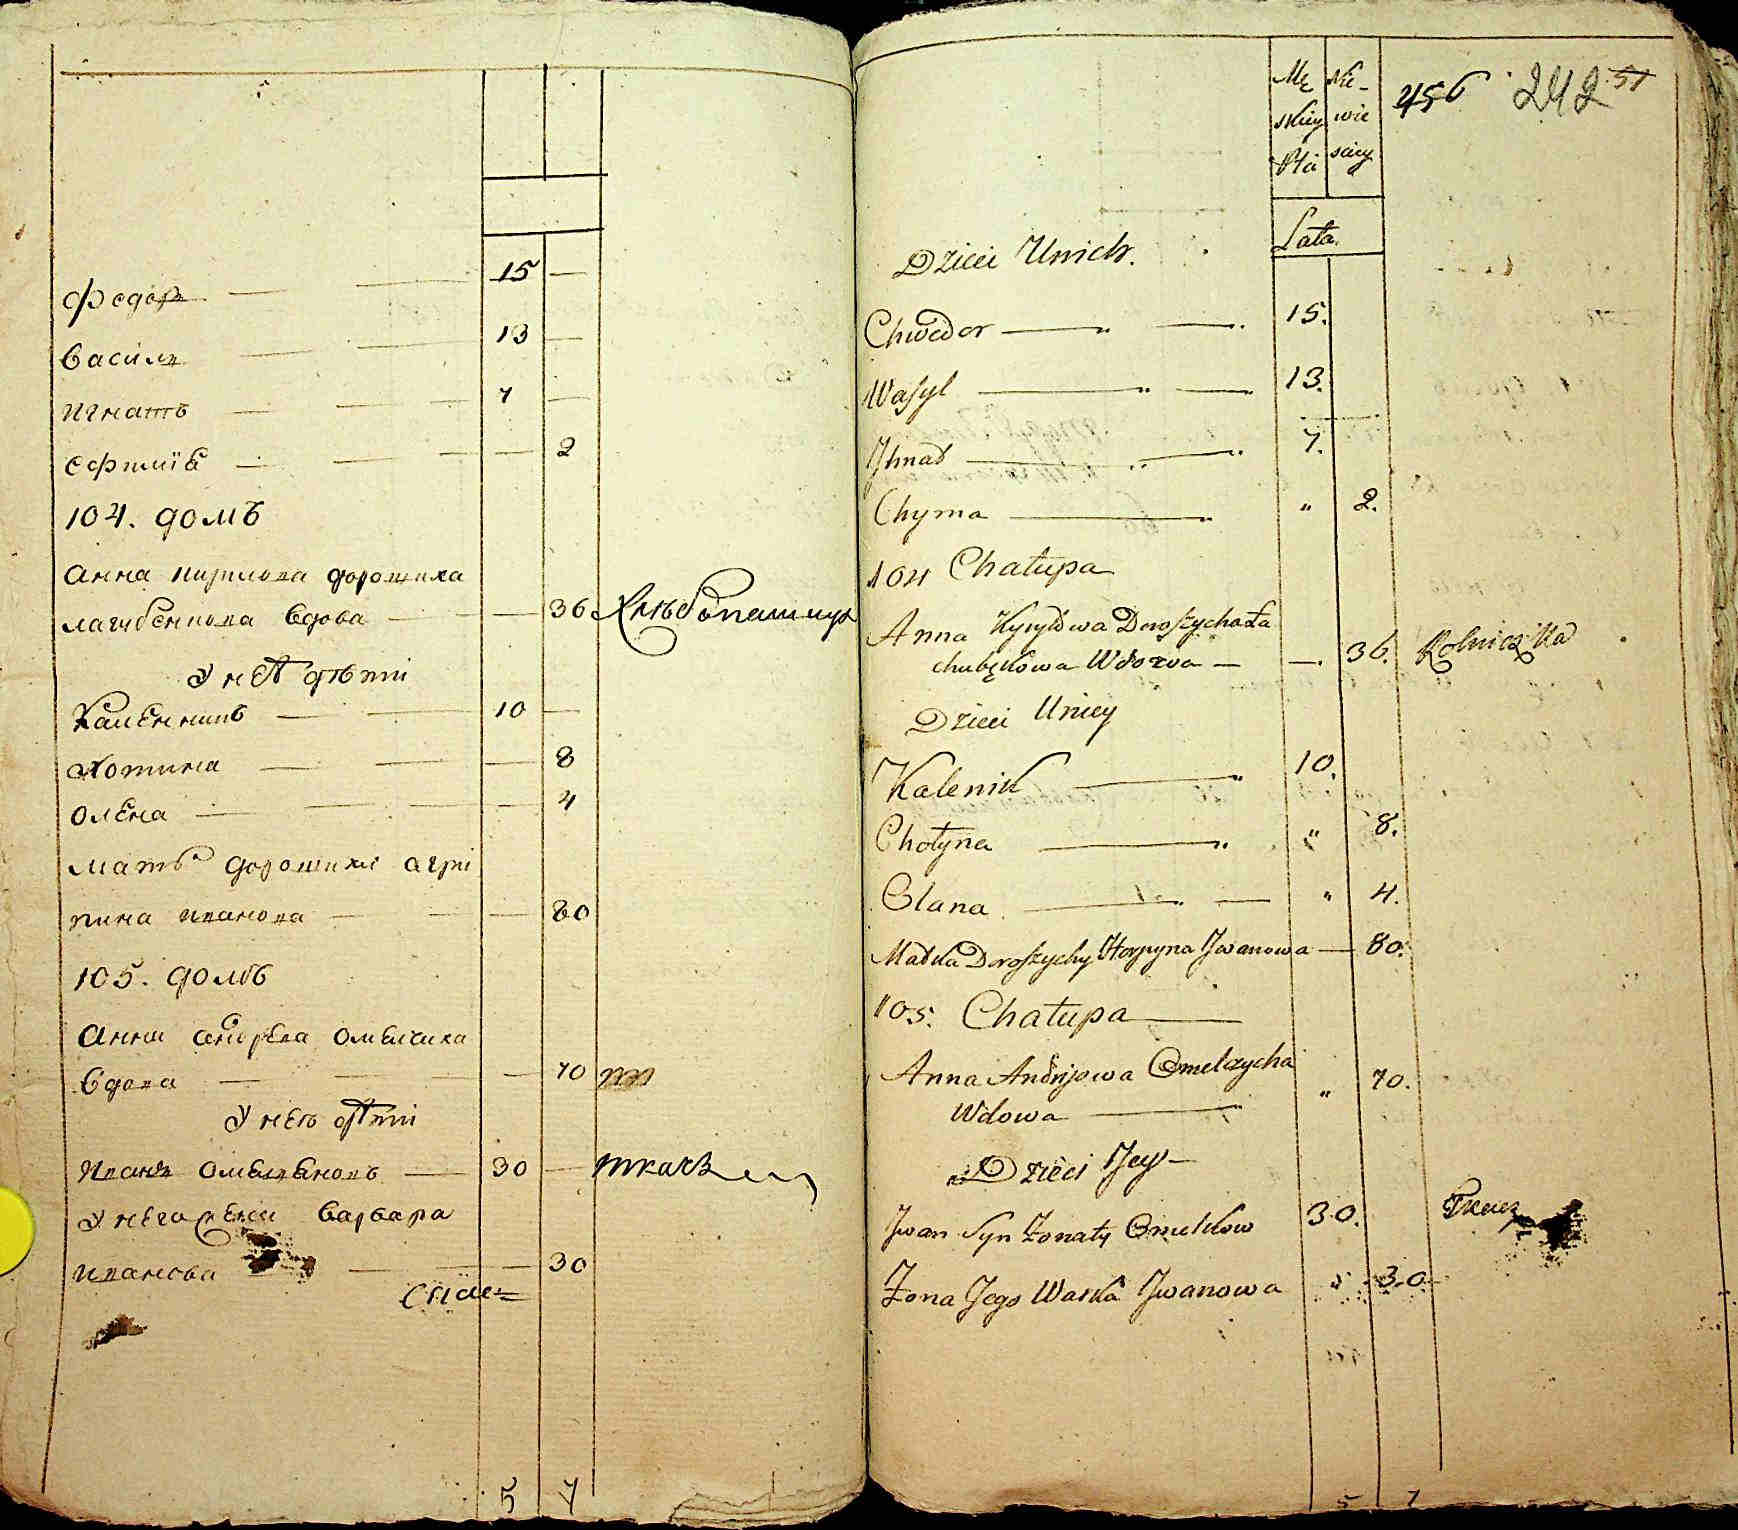 Федоръ 15
Василь 13
Игнатъ 7
Ефимія 2
104. домъ
Анна Кирилова Дорошиха
Лагубенкова вдова 36 Хлебопашиця
У неѣ дѣти
Каленникъ 10
Хотина 8
Олена 4
Мать Дорошихи Агри
пина Иванова 80
105. домъ
Анна Андреева Омелчиха
вдова 70
У нея дѣти
Иванъ Омеляновъ 30 ткачъ
У него жена Варвара
Иванова 30
5 7
456 242 51
Mę Nie-
skiey wie
Płci sciey
Lata.
Dzieci Unich.
Chwedor 15.
Wasyl 13.
Ihnad 7.
Chyma " 2.
104 Chałupa
Anna Kyryłowa Doroszycha Ła
chubękowa Wdowa 36. Rolniczka
Dzieci Uniey
Kalenik 10.
Chotyna " 8.
Olana " 4.
Madka Doroszychy Horpyna Jwanowa 80.
105. Chałupa
Anna Andrijowa Omelczycha
Wdowa " 70.
Dzieci Jey
Jwan Syn Żonaty Omelkow 30. Tkacz
Żona Jego Warka Jwanowa " 30
5 7